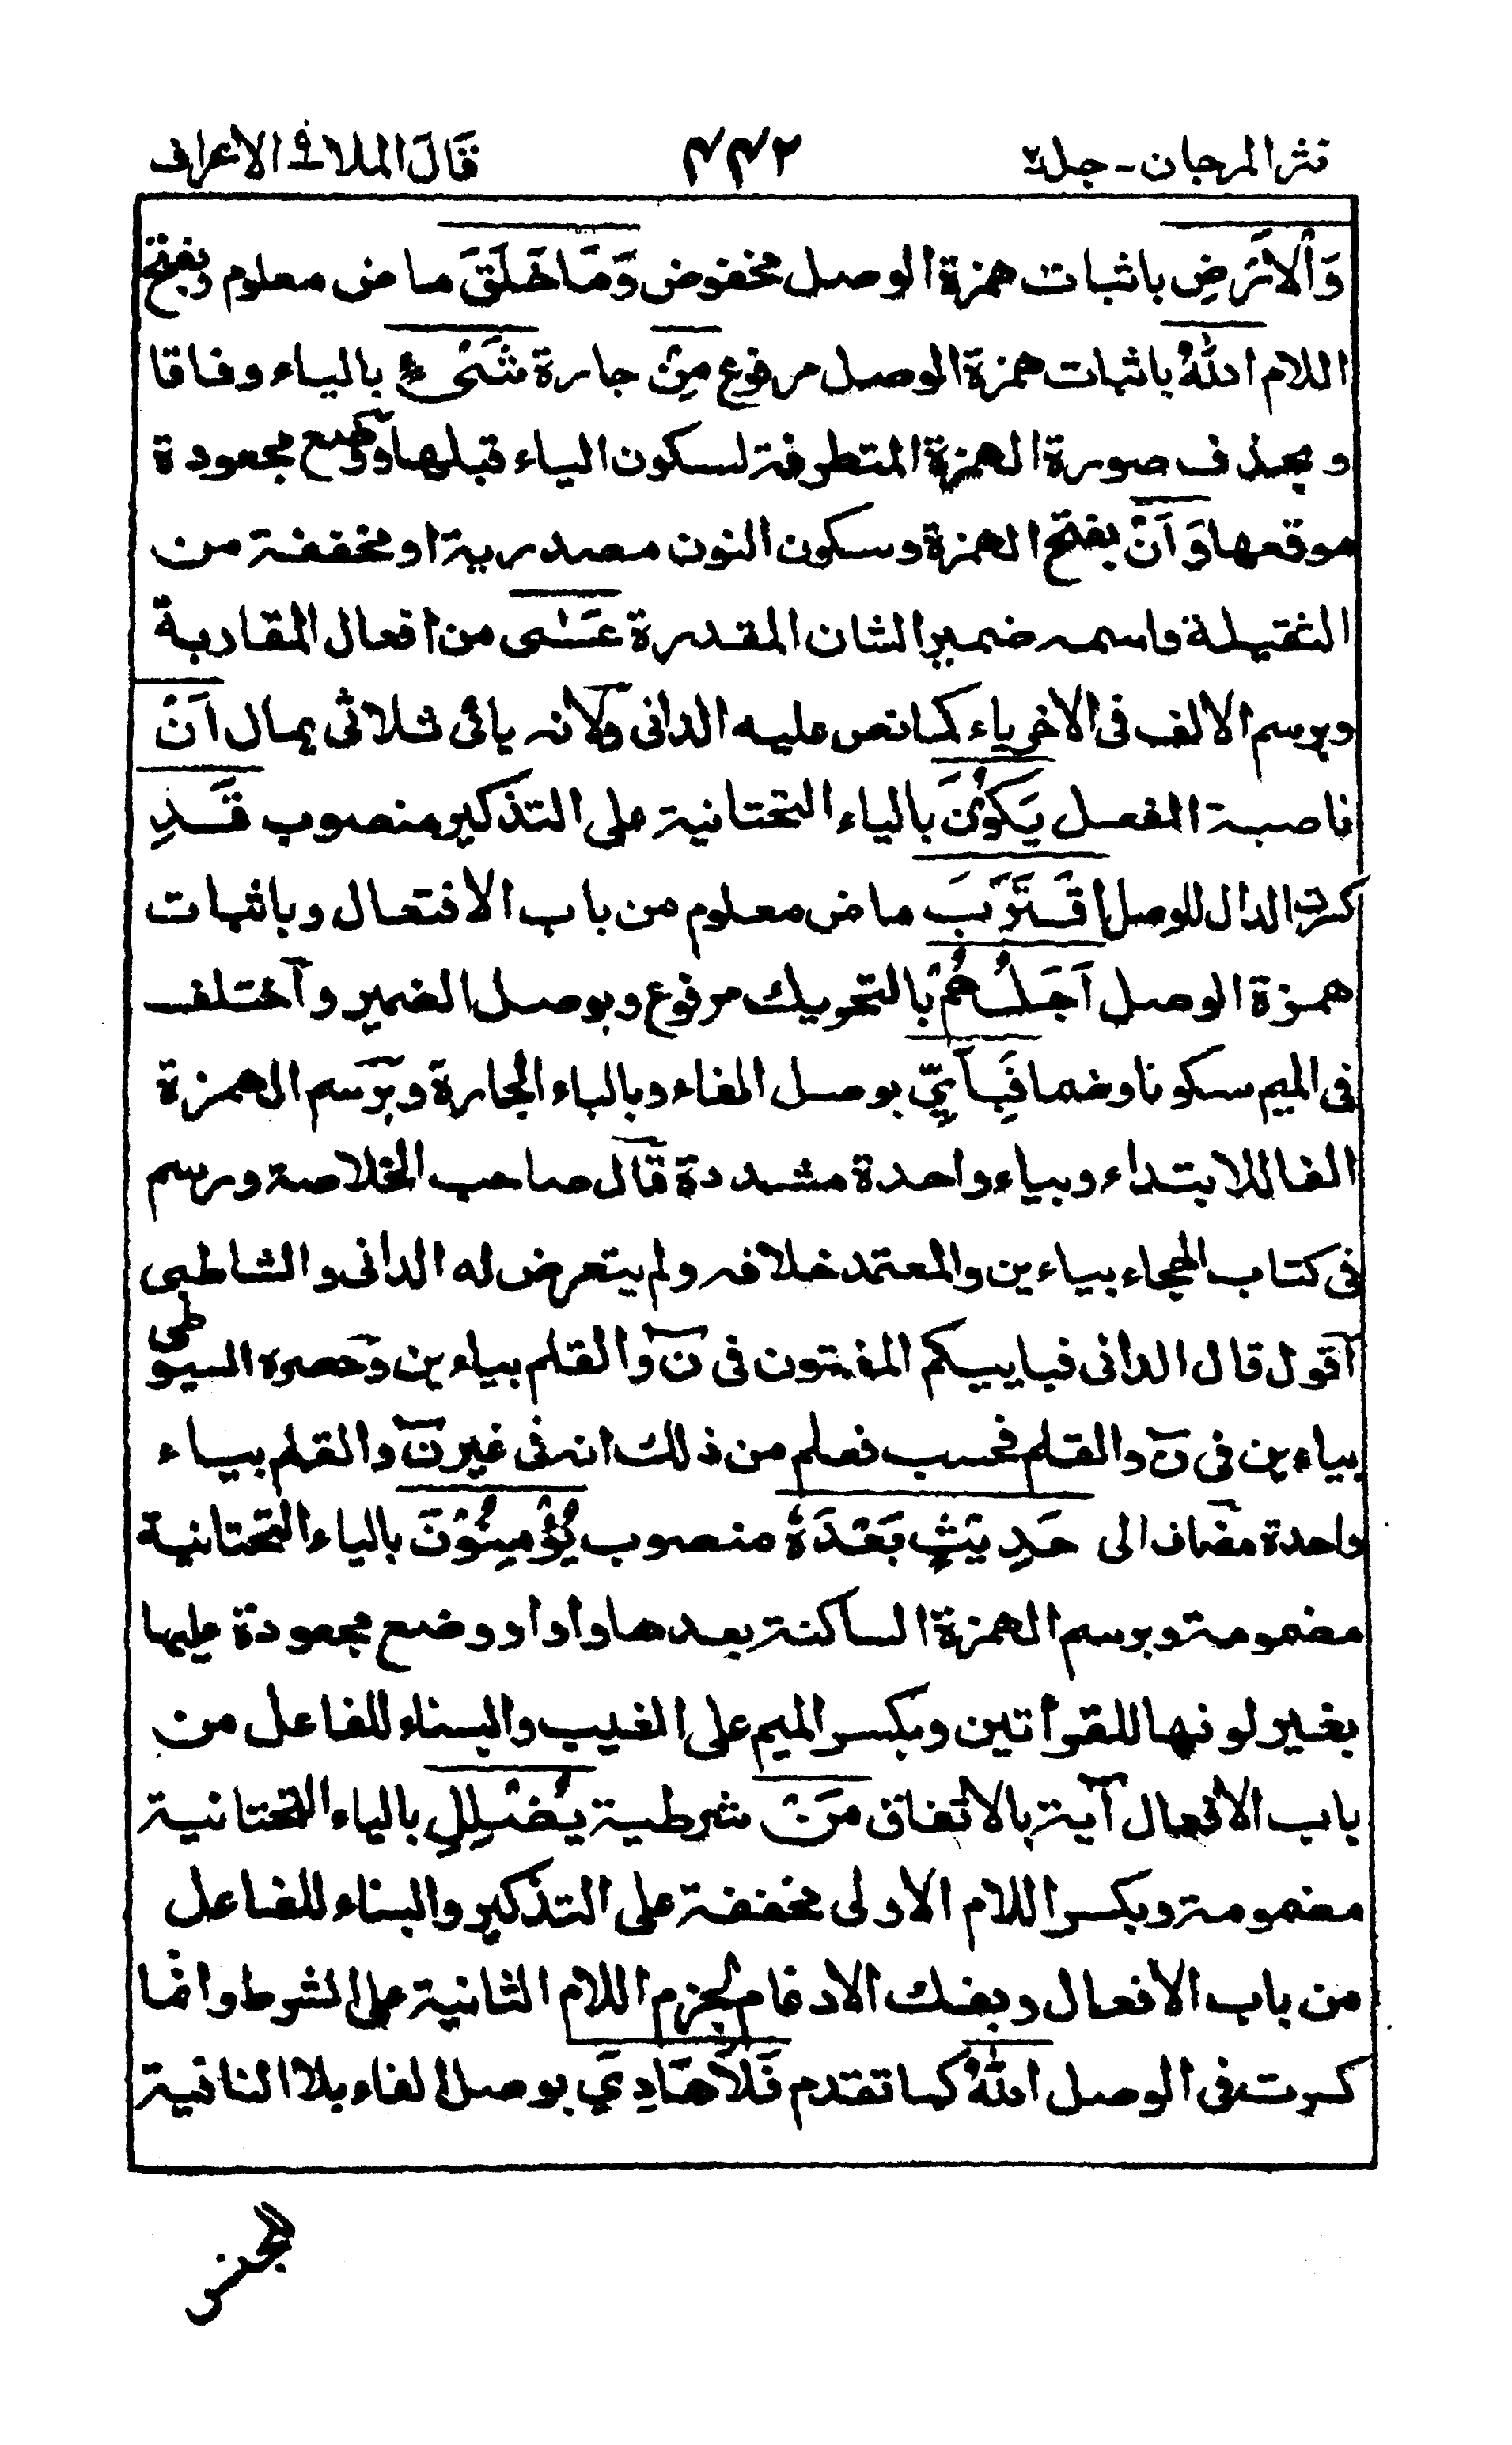 نثر المرجان - جلد۲ ۴۴۲ قَالَ الملا ۹ الاعراف
وَالْاَرْضِ باثبات همزة الوصل مخفوض وَمَا خَلَقَ ماض معلوم وبفتح
اللام اللّٰهُ باثبات همزة الوصل مرفوع مِنْ جارة شَیْءٍ بالياء وفاقا
وبحذف صورة الهمزة المتطرفة لسكون الياء قبلها ووضع مجعودة
موقعها وَاَنْ بفتح الهمزة وسكون النون مصدرية او مخففة من
الثقيلة واسمه ضمير الشان المقدرة عَسٰى من افعال المقاربة
وبرسم الالف فى الاخر ياء كما نص عليه الدانى ولانه يائى ثلاثى يمال اَنْ
ناصبة الفعل يَكُوْنَ بالياء التحتانية على التذكير منصوب قَدِ
كسرت الدال للوصل اقْتَرَبَ ماض معلوم من باب الافتعال وباثبات
همزة الوصل اَجَلُهُمْ بالتحريك مرفوع وبوصل الضمير واختلف
فى الميم سكونا وضما فَبِاَیِّ بوصل الفاء وبالباء الجارة وبرسم الهمزة
الفا للابتداء وبياء واحدة مشددة قال صاحب الخلاصة ورسم
فى كتاب الهجاء بياءين والمعتمد خلافه ولم يتعرض له الدانى والشاطبى
اقول قال الدانى فبأييكم المفتون فى نٓ والقلم بياءين وحصره السيوطى
بياءين فى نٓ والقلم فحسب فعلم من ذلك انه فى غير نٓ والقلم بياء
واحدة مضاف الى حَدِيْثٍ بَعْدَهٗ منصوب يُؤْمِنُوْنَ بالياء التحتانية
مضمومة وبرسم الهمزة الساكنة بعدها واوا ووضع مجعودة عليها
بغير لونها للقرأتين وبكسر الميم على الغيب والبناء للفاعل من
باب الافعال آية بالاتفاق مَنْ شرطية يُضْلِلِ بالياء التحتانية
مضمومة وبكسر اللام الاولى مخففة على التذكير والبناء للفاعل
من باب الافعال وبفك الادغام لجزم اللام الثانية على الشرط وانما
كسرت فى الوصل اللّٰهُ كما تقدم فَلَا هَادِیَ بوصل الفاء بلا النافية